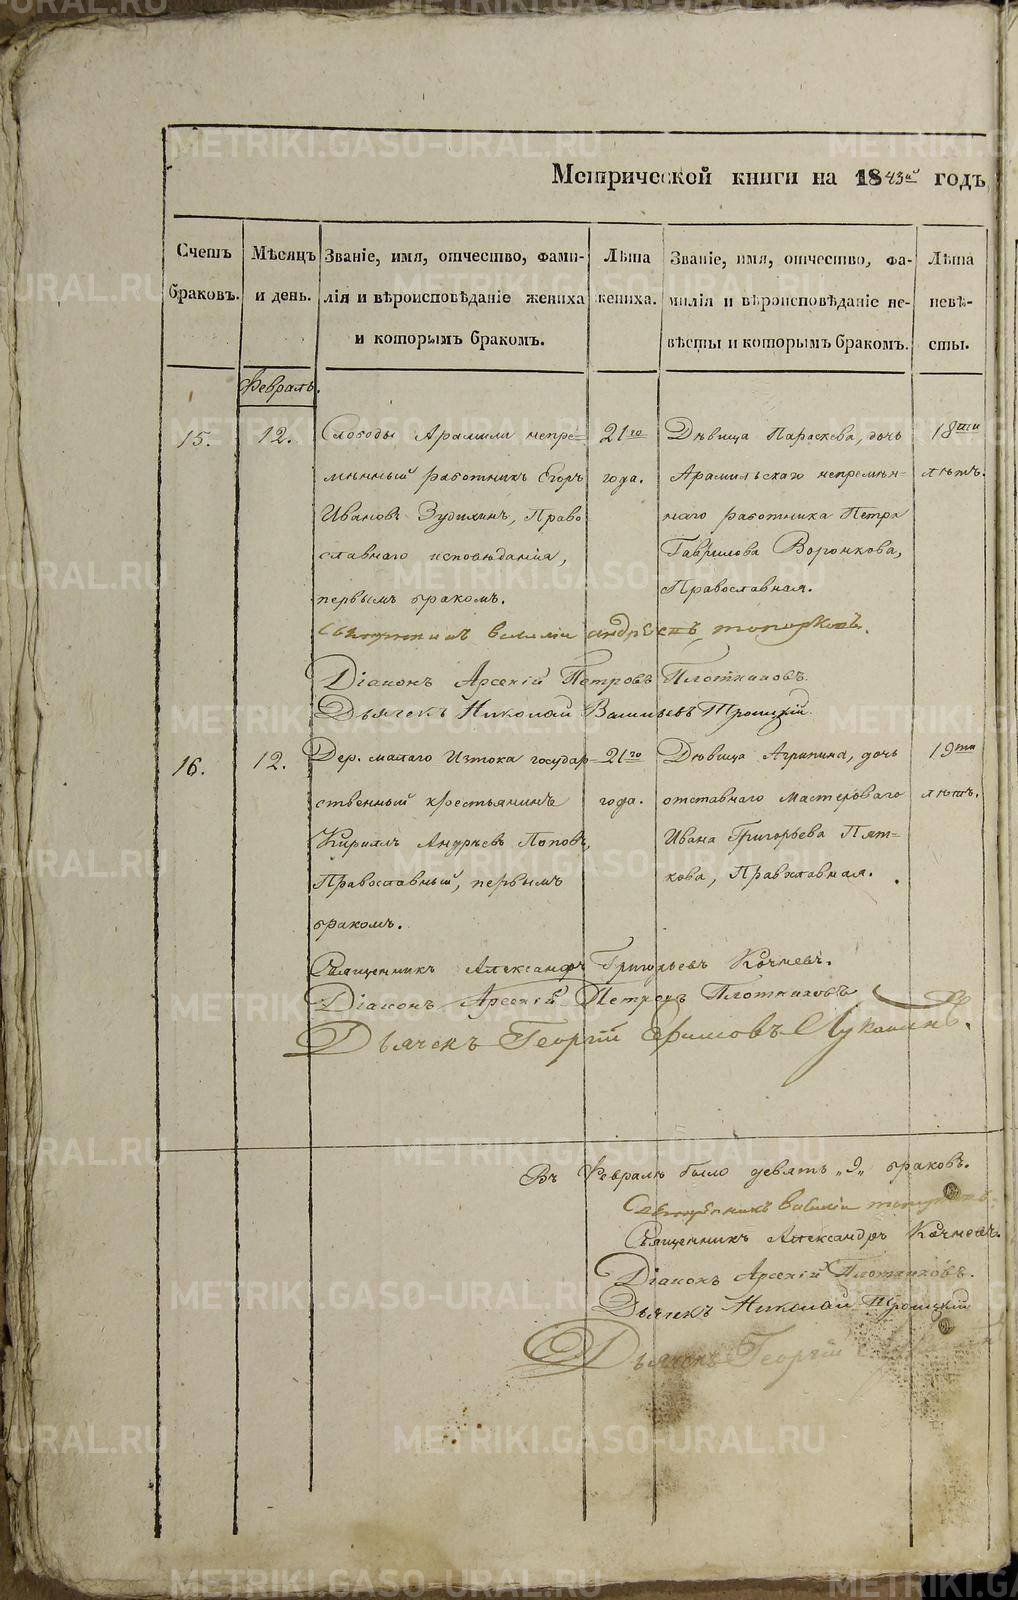 Метрической книги на 1843й годъ
Счетъ браковъ.
Мѣсяцъ и день.
Званіе, имя, отчество, фами-
лія и вѣроисповѣданіе жениха
и которымъ бракомъ.
Лѣта жениха.
Званіе, имя, отчество, фа-
милія и вѣроисповѣданіе не-
вѣсты и которымъ бракомъ.
Лѣта
невѣ-
сты.
Февраль.
15. 12. Слободы Арамили непре- 21го Дѣвица Параскева, дочь 18ти
мѣнный работникъ Егоръ года. Арамильскаго непремѣн- лѣтъ.
Ивановъ Зудихинъ, Право наго работника Петра
славнаго исповѣданія, Гаврилова Воронкова,
первымъ бракомъ. Православная.
Священникъ Василій Андреевъ Топорковъ.
Діаконъ Арсеній Петровъ Плотниковъ.
Дьячекъ Николай Васильевъ Троицкій.
16. 12. Дер. малаго Изтока государ- 21го Дѣвица Агрипина, дочь 19ти
ственный крестьянинъ года. отставнаго мастероваго лѣтъ.
Кириллъ Андреевъ Поповъ, Ивана Григорьева Пят-
Православный, первымъ кова, Православная.
бракомъ.
Священникъ Александръ Григорьевъ Кочневъ.
Діаконъ Арсеній Петровъ Плотниковъ
Дьячекъ Георгій Ефимовъ Луканинъ.
Въ Февралѣ было девять „9„ браковъ.
Священникъ Василій Топорковъ.
Священникъ Александръ Кочневъ.
Діаконъ Арсеній Плотниковъ.
Дьячекъ Николай Троицкій
Дьячекъ Георгій
METRIKI.GASO-URAL.RU